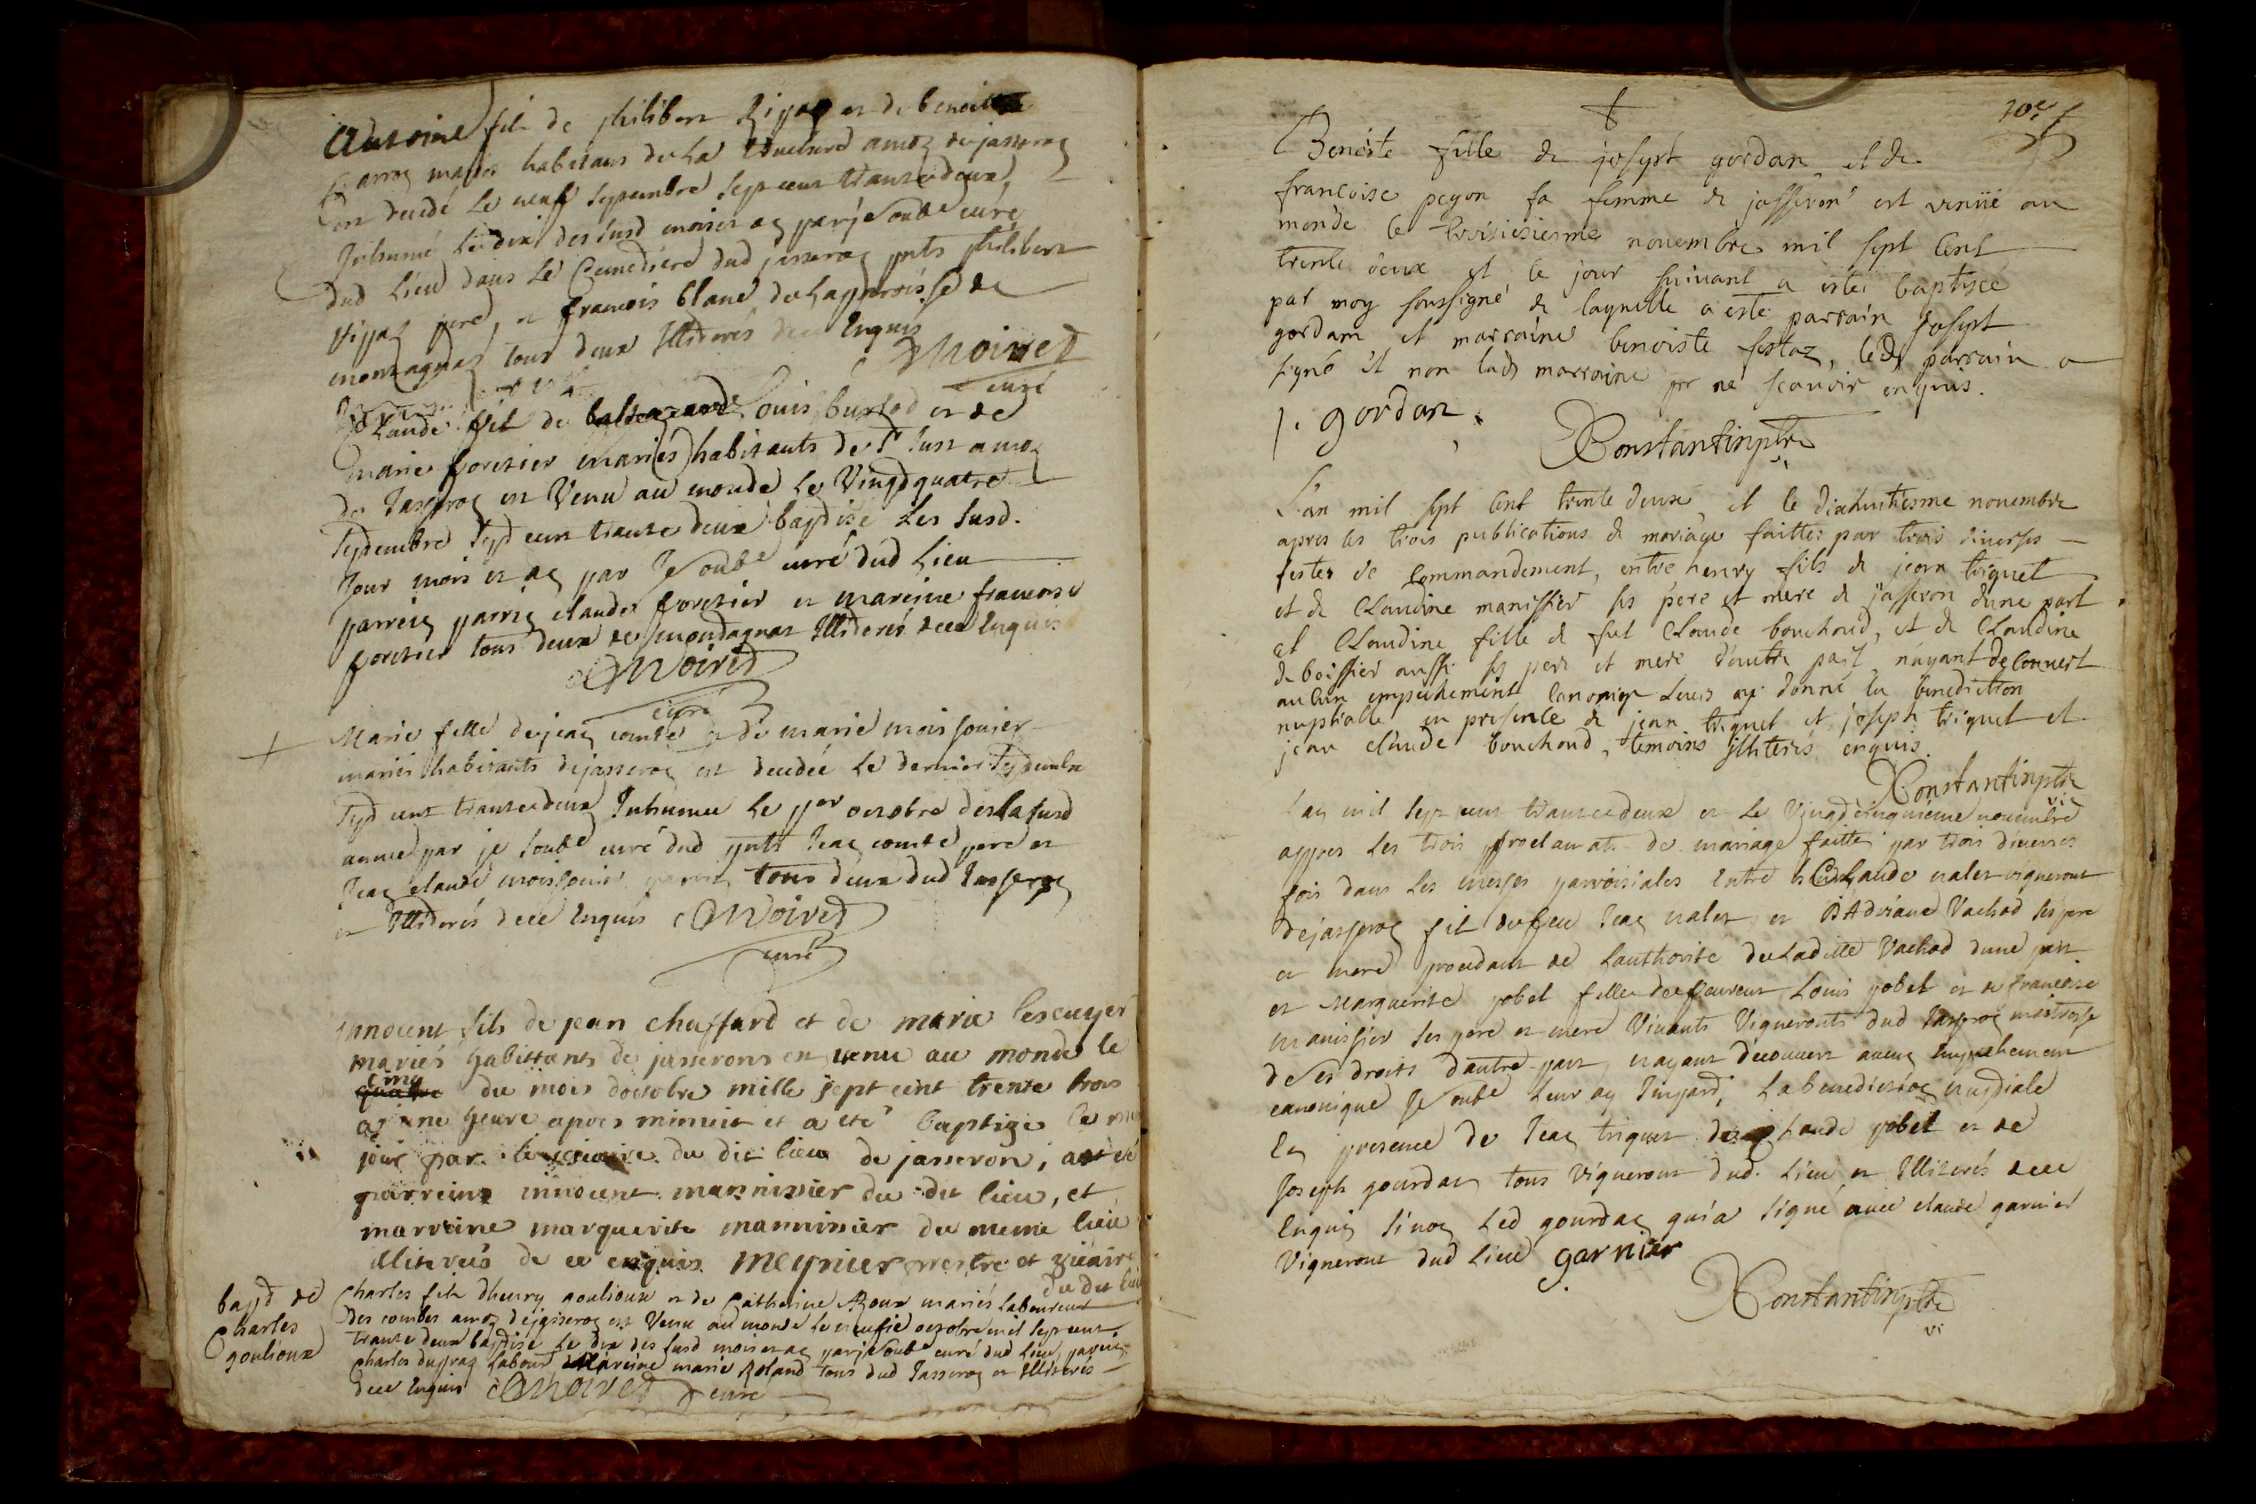 Antoine fils de philibert et de benoitte
mariés habitans de La amoz de jasseroz
est decedé Le neuf septembre sept cent trante deux
Inhumé Le dix des susd mois et aq par je soubé curé
dud Lieu dans Le Cemediere dud jasseroz pnts philibert
pere, et francois blanc de La parroisse de
montagnaz tous deux Illiderés Enquis
Moiret
curé
Claude fils de Louis burtod et de
marie foretier mariés habitants de St Just amoz
de Jasseroz est Venu au monde Le Vingdquatre
Sepdembre Sepd cent trante deux baptisé Les susd.
Jour mois et aq par Je soubé curé dud Lieu
parrein claude foretier et mareine francoise
foretier tous deux de mondagnat Illiderés dece Enquis
Moiret
curé
Marie fille de jeaq comte et de marie moissonier
mariés habitants de jasseroz est decedée Le dernier Sepdembre
Sepd cent trante deux Inhumée Le per octobre de La susd
année par je soubé curé dud pnts Jeaq comte pere et
Jeaq claude moissonier tous deux dud Jasseroz
et Illiderés dece Enquis Moiret
curé
innocent fils de jean chaffard et de marie lescuyer
mariés habittants de jasserons est venu au monde le
cinq
quatre du mois doctobre mille sept cent trente trois
a une heure apres minuit et a eté baptizé le
jour par le vicaire du dit lieu de jasseron, a eté
parreins innocent mannissier du dit lieu, et
marreine marguerite mannissier du meme lieu
illiterés de ce enquis Meynier prestre et vicaire
du dit lieu
bapd de
Charles
goulioux
Charles fils dhenry goulioux et de Catherine Roux mariés Laboureurs
des combes amoz de jasseroz est Venu au monde Le neufie octobre mil sept cent
trante deux baptisé Le dix des susd mois et aq par je soubé curé dud Lieu, parrein
Charles dupraz Labour mareine marie Roland tous dud Jasseroz et Illiterés
dece Enquis Moiret curé
Benoiste fille de josept gordan et de
francoise peyon sa femme de jasseron est venüe au
monde le troisiesme novembre mil sept cent
trente deux et le jour suivant a estée baptisée
par moy soussigné de laquelle a esté parrain josept
gordam et marraine benoiste festaz, led parrain a
signé et non lad marraine pr ne scavoir enquis.
j. gordan.
Constantin ptre
vi
L'an mil sept cent trente deux, et le dixhuitiesme novembre
apres les trois publications de mariage faittes par trois diverses
festes de Commandement, entre henry fils de jean triquet
et de Claudine manissier ses pere et mere de jasseron dune part
et Claudine fille de fut Claude bouchoud, et de Claudine
de boissier aussi ses pere et mere d'autre part n'ayant decouvert
aucun empechement canonique Leurs ay donné la benediction
nuptialle en presence de jean triquet et joseph triquet et
jean claude bouchoud, temoins illiterés enquis.
Constantin ptre
vic
L'an mil sept cent trante deux et Le Vingdcinquieme novembre
appres Les trois proclamats de mariage faittes par trois diverses
fois dans Les messes parroisiales Entre Claude valet vigneront
de jasseroz fils de feu Jeaq valet et Adriane Vachod ses pere
et mere procedant de Lauthorite de Laditte Vachod dune part
et Marguerite pobel fille de Louis pobel et de francoise
manissier ses pere et mere Vivants Vignerouts dud Jasseroz maitresse
de ses droits d'autre part, nayant decouvert aucuq Empechement
canonique Je soubé Leur ay Impard. La benedictioq nupdiale
En presence de Jeaq triquet de Claude pobel et de
Joseph gourdan tous Vignerout dud. Lieu et Illiterés dece
Enquis sinoq Led gourdaq qui a signé avec claude garnier
Vignerout dud Lieu garnier
Constantin ptre
vi